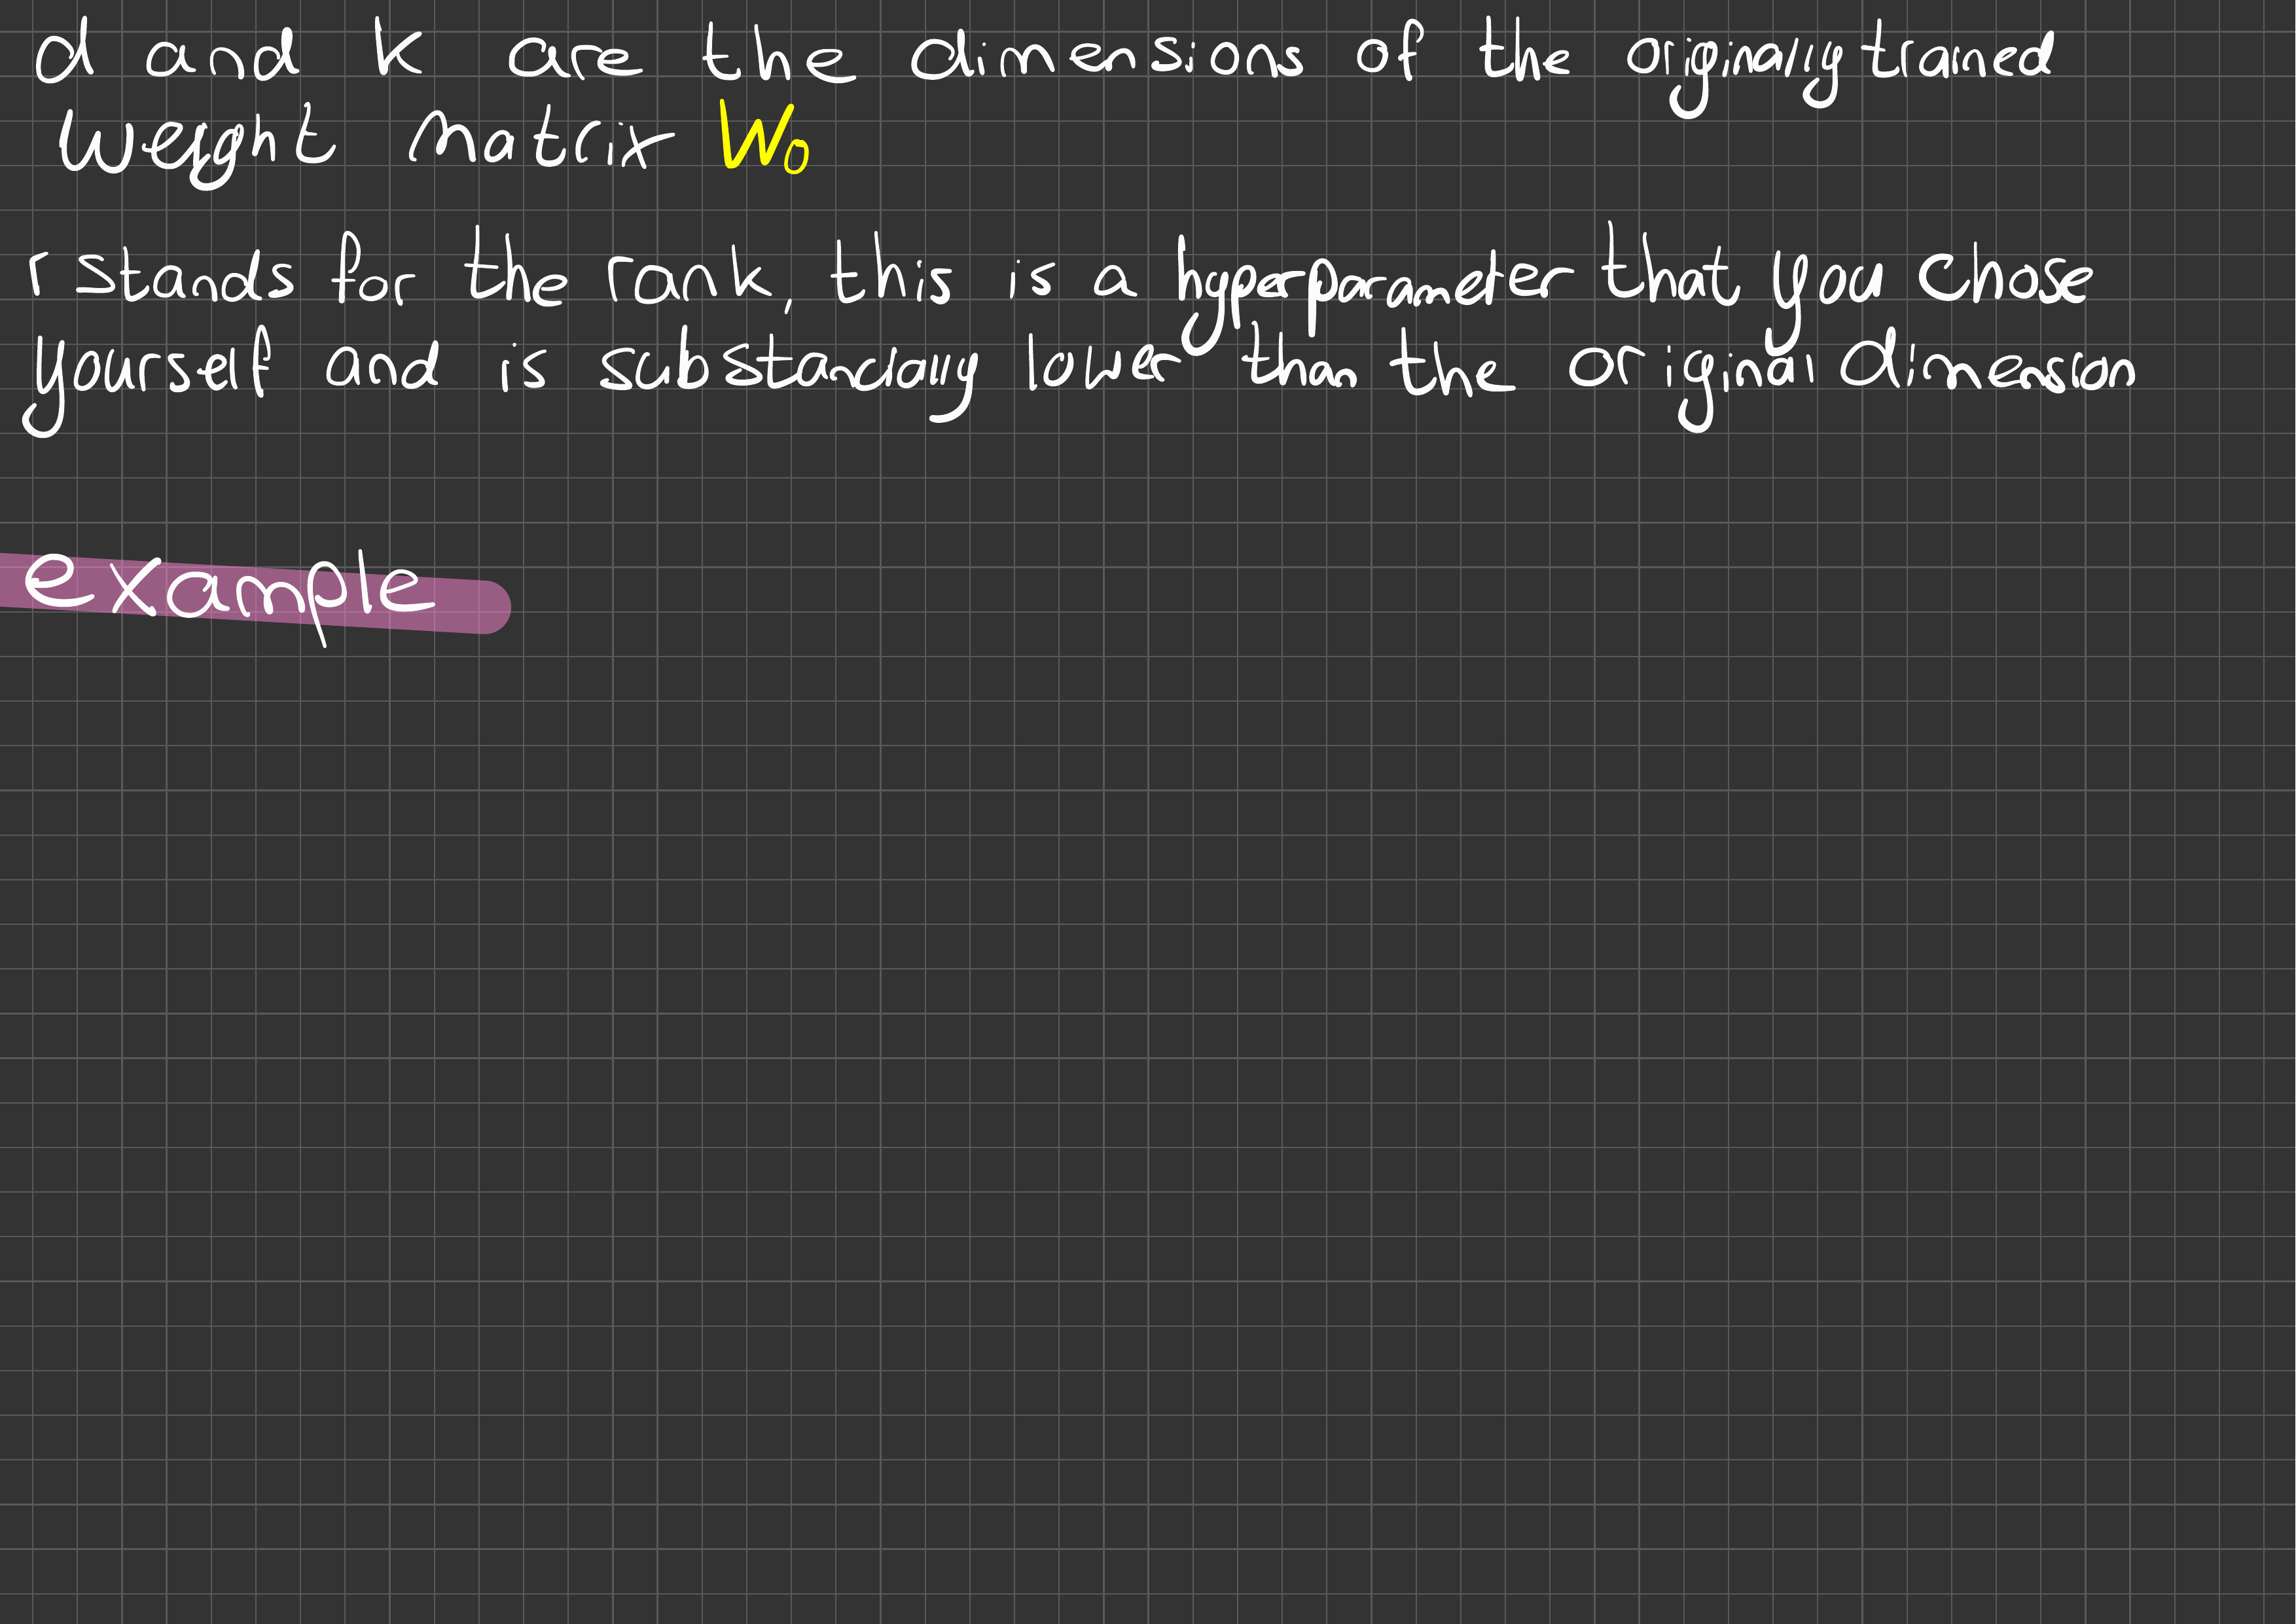 d and k are the dimensions of the originally trained
weight matrix W₀
r stands for the rank, this is a hyperparameter that you chose
yourself and is substancially lower than the original dimension
example